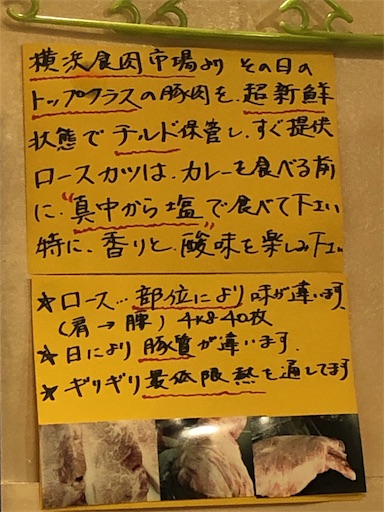 横浜食肉市場より その日の
トップクラスの豚肉を、超新鮮
状態でチルド保管し、すぐ提供
ロースカツは、カレーを食べる前
に、"真中から塩"で食べて下さい
特に、香りと、酸味を楽しみ下さい
★ロース…部位により味が違います
(肩→腰) 4K8 40枚
★日により豚質が違います.
★ギリギリ最低限熱を通してます